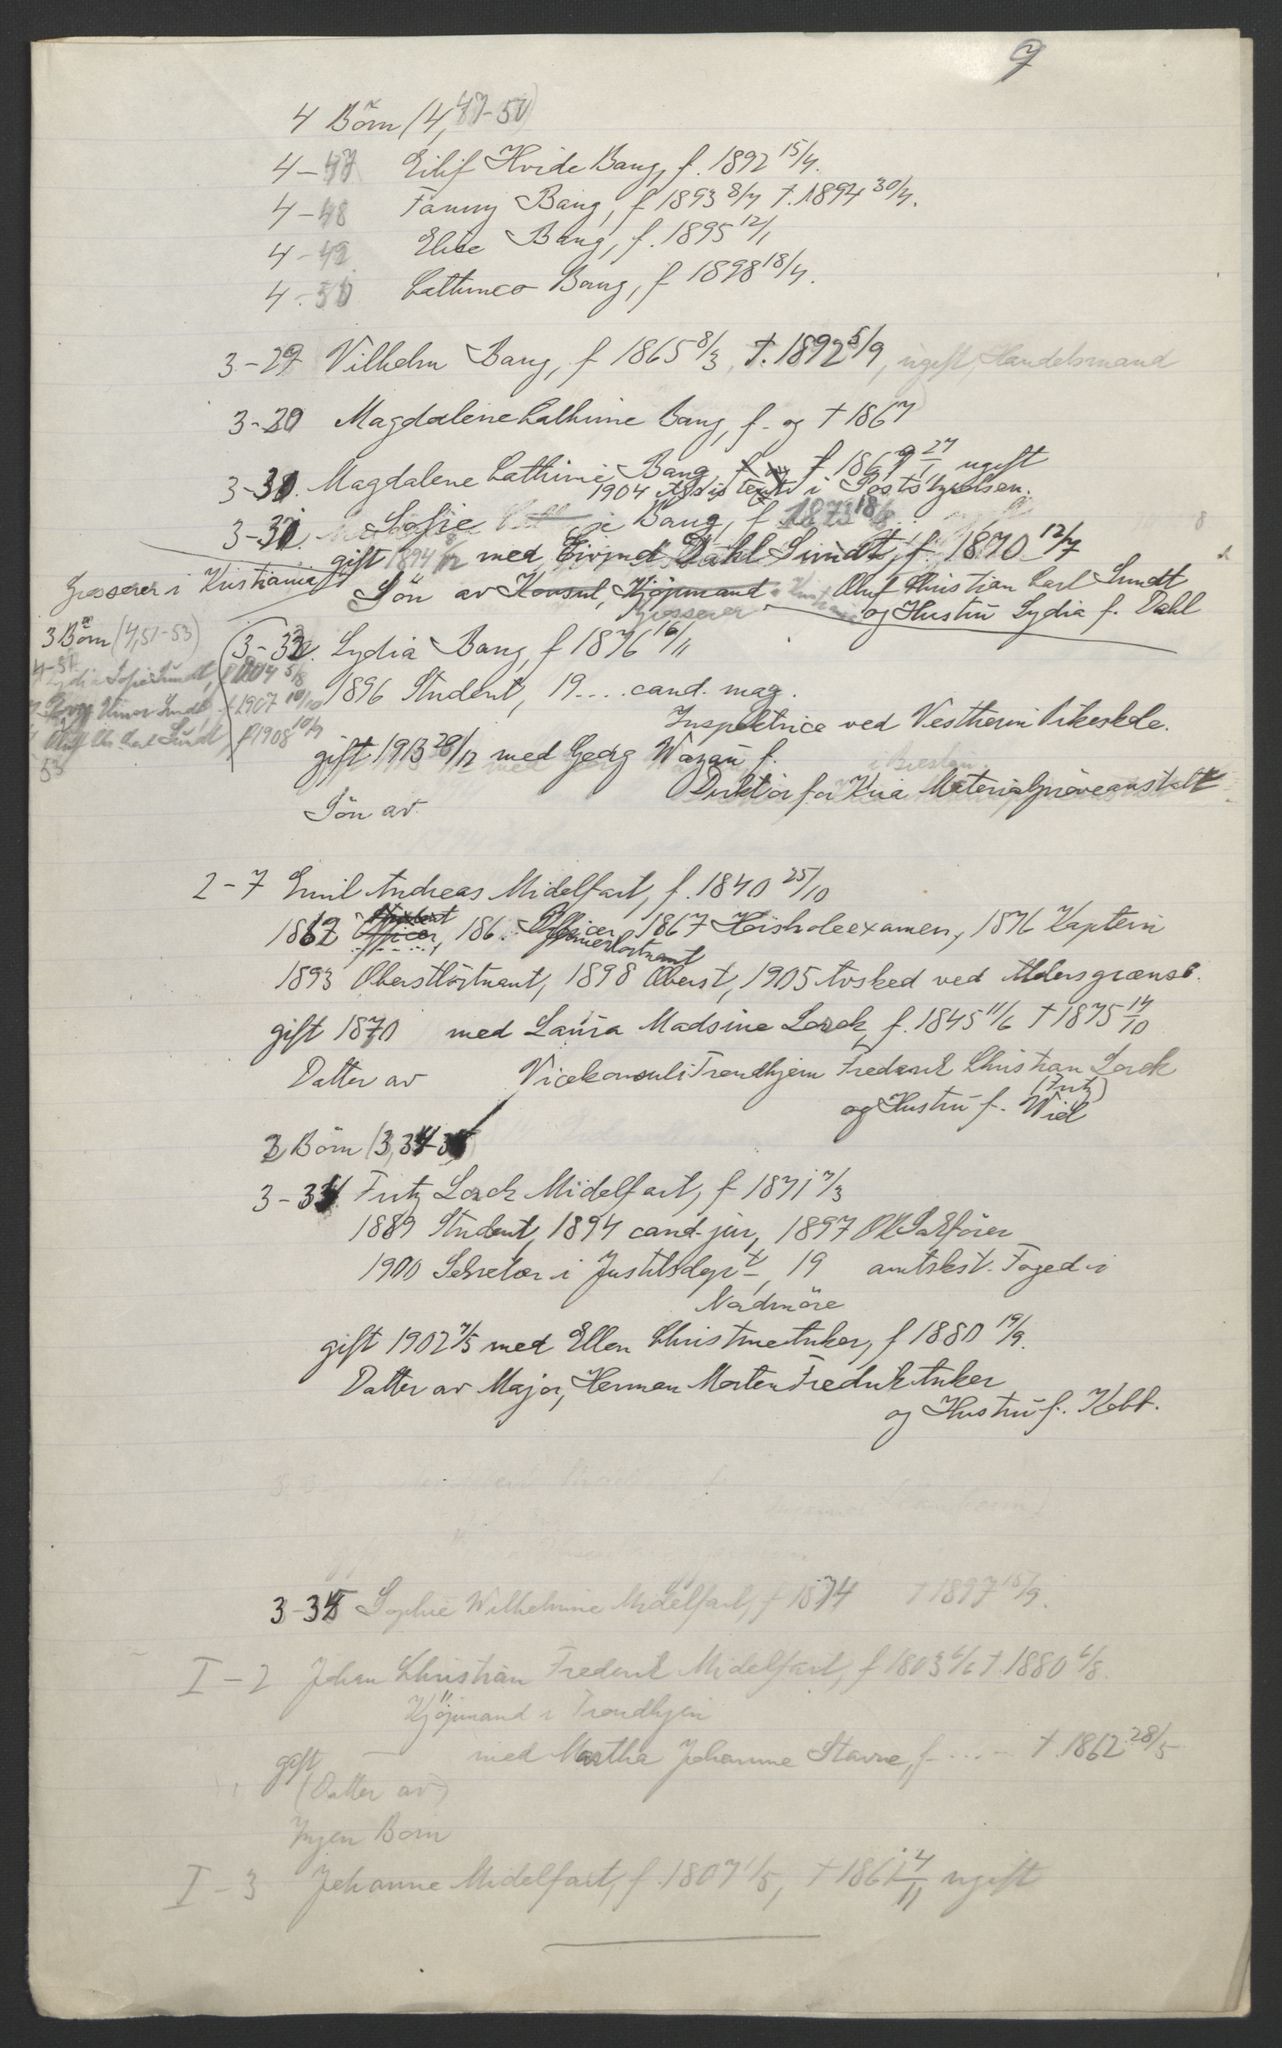 7
4 Börn (4, 47-50)
4-47 Eilif Hvide Bang, f. 1892 15/4.
4-48 Fanny Bang, f 1893 8/7 †. 1894 30/4.
4-49 Elise Bang, f. 1895 12/1
4-50 Cathinco Bang, f 1898 18/4.
3-29 Vilhelm Bang, f 1865 8/3, †. 1892 5/9, ugift, Handelsmand
3-30 Magdalene Cathrine Bang, f. og † 1867
3-31. Magdalene Cathrine Bang, f 1869 27/1 ugift
1904 Assistent i Poststyrelsen.
3-32. Sofie Bang, f 1873 18/8
gift 1894 8/12 med Eivind Dahl Sundt, f. 1870 12/7
Grosserer i Kristiania
Sön av Konsul, Kjöpmand Oluf Christian Carl Sundt
Grosserer og Hustru Lydia f. Dahl
3 Börn (4, 51-53)
4-51. Lydia Sofie Sundt, f 1904 5/8
f 1907 10/10
Oluf Chr. Carl Sundt, f 1908 10/9
53
3-33. Lydia Bang, f 1876 16/11
1896 Student, 19.... cand. mag.
Inspektrice ved Vestheim Pikeskole.
gift 1913 28/12 med Georg Wazau f.
Direktör for Kria Materialpröveanstalt
Sön av
2-7 Emil Andreas Midelfart, f. 1840 25/10
1862 Officer, 186. Premierlötnant 1867 Höiskoleexamen, 1876 Kaptein
1893 Oberstlötnant, 1898 Oberst, 1905 Avsked ved Aldersgrænse.
gift 1870 med Laura Madsine Lorck, f. 1845 11/6 † 1875 14/10
Datter av Vicekonsul i Trondhjem Frederik Christian Lorck
(Fritz)
og Hustru f. Wid
2 Börn (3, 34-35)
3-34 Fritz Lorck Midelfart, f 1871 7/3
1889 Student, 1894 cand. jur, 1897 OR Sakförer
1900 Sekretær i Justitsdept, 19 amtskst. Foged i
Nordmöre
gift 1902 7/5 med Ellen Christine Anker, f 1880 19/9.
Datter av Major, Herman Morten Fredrik Anker
og Hustru f. Kobb.
3-35 Sophie Wilhelmine Midelfart, f 1874 † 1897 15/9.
I-2 Johan Christian Frederik Midelfart, f 1803 6/6 †. 1880 6/8.
Kjöpmand i Trondhjem
gift med Martha Johanne Stavne, f .... †. 1862 28/5
(Datter av)
Ingen Börn
I-3 Johanne Midelfart, f. 1807 1/5, † 1861 4/11 ugift